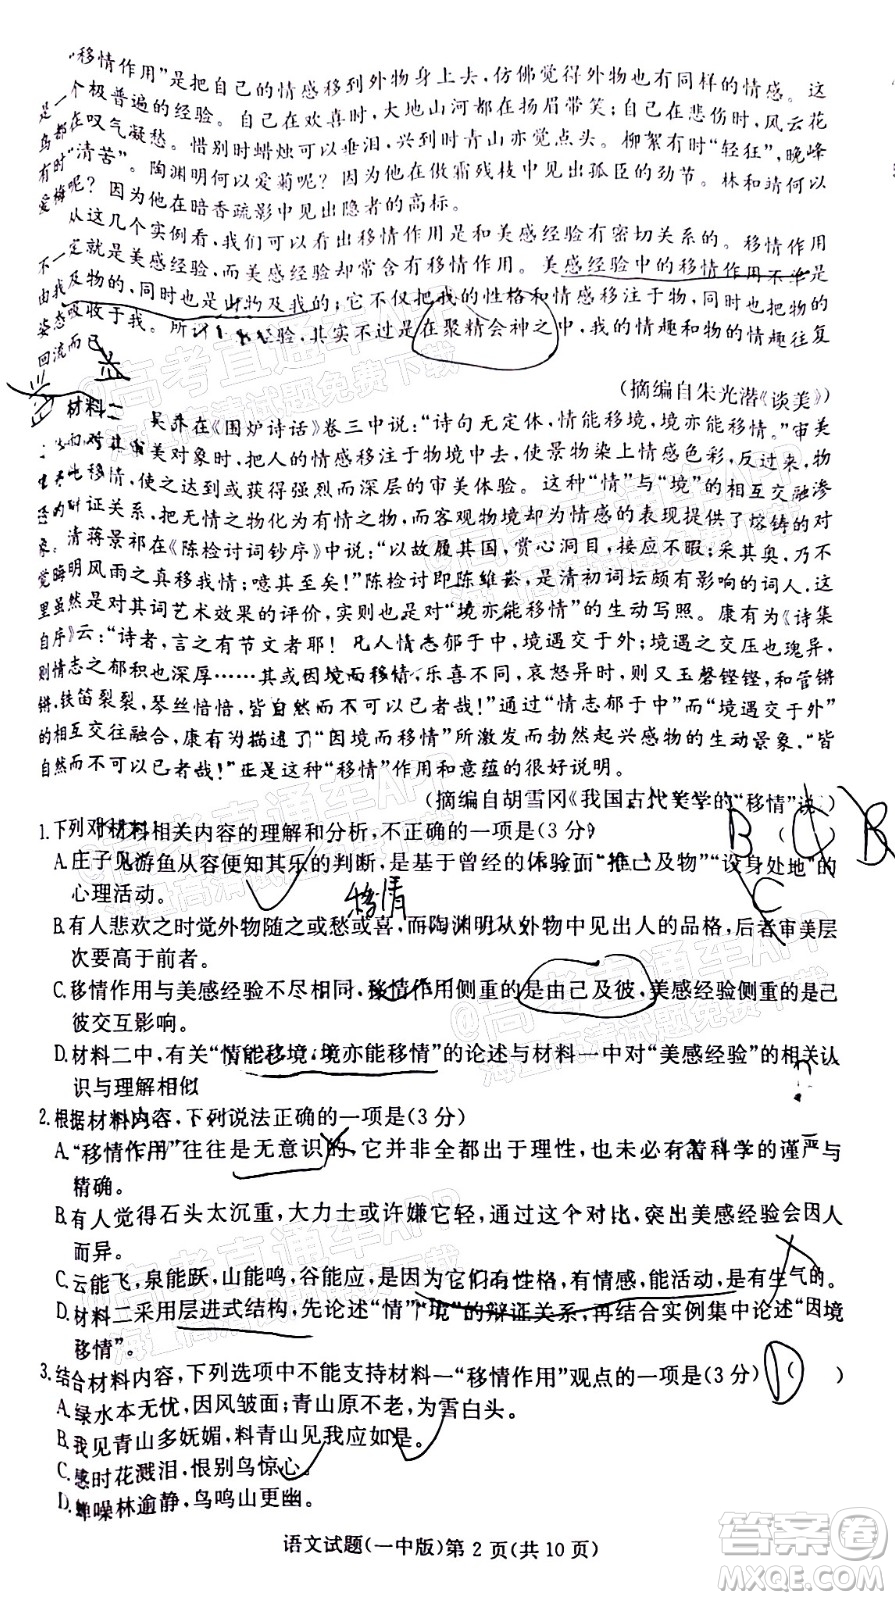 “移情作用”是把自己的情感移到外物身上去，仿佛觉得外物也有同样的情感。这
是一个极普遍的经验。自己在欢喜时，大地山河都在扬眉带笑；自己在悲伤时，风云花
鸟都在叹气凝愁。惜别时蜡烛可以垂泪，兴到时青山亦觉点头。柳絮有时“轻狂”，晚峰
有时“清苦”。陶渊明何以爱菊呢？因为他在傲霜残枝中见出孤臣的劲节。林和靖何以
爱梅呢？因为在暗香疏影中见出隐者的高标。
从这几个实例看，我们可以看出移情作用是和美感经验有密切关系的。移情作用
不一定就是美感经验，而美感经验却常含有移情作用。美感经验中的移情作用不单是
由我及物的，同时也是由物及我的；它不仅把我的性格和情感移注于物，同时也把物的
姿态吸收于我。所谓美感经验，其实不过是在聚精会神之中，我的情趣和物的情趣往复
回流而已。
（摘编自朱光潜《谈美》）
材料二 吴乔在《围炉诗话》卷三中说：“诗句无定体，情能移境，境亦能移情。”审美
对象时，把人的情感移注于物境中去，使景物染上情感色彩，反过来，物
移情，使之达到美感，获得强烈而深层的审美体验。这种“情”与“境”的相互交融渗
的辩证关系，把无情之物化为有情之物，而客观物境却为情感的表现提供了熔铸的对
象。清蒋景祁在《陈检讨词钞序》中说：“以故履其国，赏心洞目，接应不暇；采其奥，乃不
觉晦明风雨之真移我情，噫其至矣！”陈检讨即陈维崧，是清初词坛颇有影响的词人，这
里虽然是对其词艺术效果的评价，实则也是对“境亦能移情”的生动写照。康有为《诗集
自序》云：“诗者，言之有节文者耶！凡人情志郁于中，境遇交于外，境遇之交压也瑰异，
则情志之郁积也深厚……其或因境而移情，乐喜不同，哀怒异时，则又玉磬铿铿，和管锵
锵，铁笛裂裂，琴丝愔愔，皆自然而不可以已者哉！”通过“情志郁于中”而“境遇交于外”
的相互交往融合，康有为描述了“因境而移情”所激发而勃然起兴感物的生动景象，“皆
自然而不可以已者哉！”正是这种“移情”作用和意蕴的很好说明。
（摘编自胡雪冈《我国古代美学的“移情”说》）
1.下列对材料相关内容的理解和分析，不正确的一项是（3分）（ ）
A.庄子见游鱼从容便知其乐的判断，是基于曾经的体验而“推己及物”“设身处地”的
心理活动。
B.有人悲欢之时觉外物随之或愁或喜，而陶渊明从外物中见出人的品格，后者审美层
次要高于前者。
C.移情作用与美感经验不尽相同，移情作用侧重的是由己及彼，美感经验侧重的是己
彼交互影响。
D.材料二中，有关“情能移境，境亦能移情”的论述与材料一中对“美感经验”的相关认
识与理解相似
2.根据材料内容，下列说法正确的一项是（3分）
A.“移情作用”往往是无意识的，它并非全都出于理性，也未必有着科学的谨严与
精确。
B.有人觉得石头太沉重，大力士或许嫌它轻，通过这个对比，突出美感经验会因人
而异。
C.云能飞，泉能跃，山能鸣，谷能应，是因为它们有性格，有情感，能活动，是有生气的。
D.材料二采用层进式结构，先论述“情”“境”的辩证关系，再结合实例集中论述“因境
移情”。
3.结合材料内容，下列选项中不能支持材料一“移情作用”观点的一项是（3分）（ ）
A.绿水本无忧，因风皱面；青山原不老，为雪白头。
B.我见青山多妩媚，料青山见我应如是。
C.感时花溅泪，恨别鸟惊心。
D.蝉噪林逾静，鸟鸣山更幽。
语文试题（一中版）第 2 页（共 10 页）
移情
B
C
B
C
D
@高考直通车APP
海量高清试题免费下载
答案卷
MXQE.COM